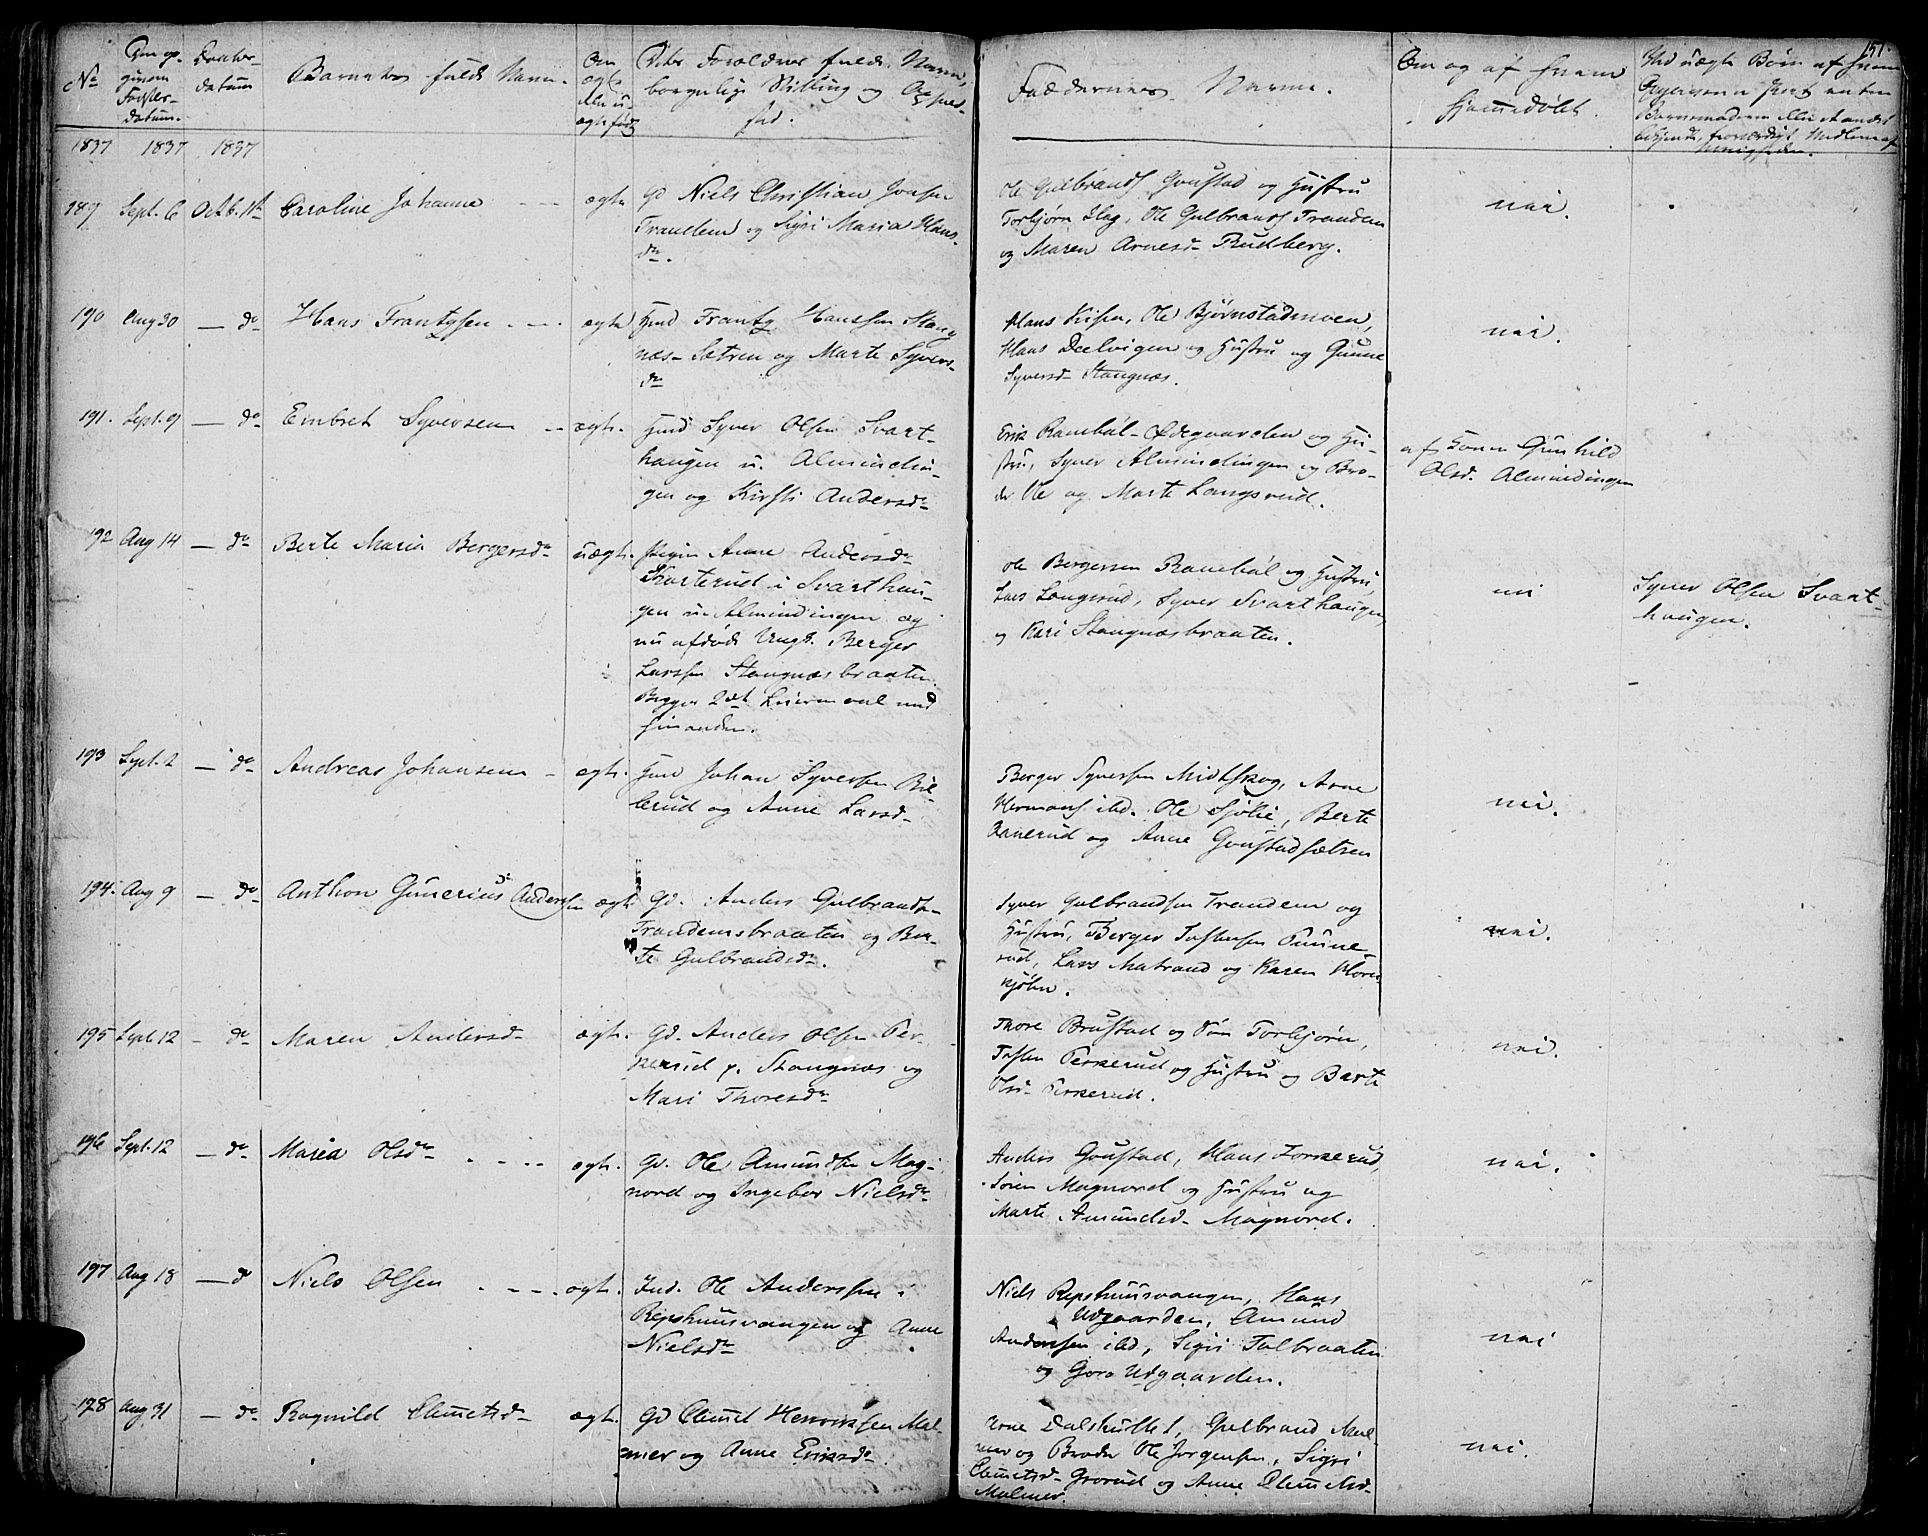 151.
No
Døbe-
datum
Barnets fulde Navn.
Om
ægte
eller u-
ægte født
Dets Forældres fulde Navn,
borgerlige Stilling og Opholds-
sted.
Faddernes Navne.
Om og af hvem
hjemmedøbt.
1837 1837 1837
189 Sept. 6 Octb. 1ste Caroline Johanne ægte Gd Niels Christian Jonsen
Trandem og Sigri Maria Hans-
dr.
Ole Gulbrands Goustad og Hustru
Torbjørn Hag, Ole Gulbrands Trandem
og Maren Arnesd. Rudberg.
nei.
190 Aug 30 — do Hans Frantzsen ægte Huusmd Frantz Hanssen Stang-
næs-Sætren og Marte Syvers-
dr
Hans Kisen, Ole Bjørnstadmoen,
Hans Deelvigen og Hustru og Gunne
Syversd. Stangnæs.
nei.
191. Sept. 9 — do Embret Syversen ægte. Huusmd Syver Olsen Svart-
haugen u. Almindin-
gen og Kirsti Andersdr
Erik Ranebøl-Ødegaarden og Hu-
stru, Syver Almindingen og Bro-
der Ole og Marte Langsrud.
af Konen Gunhild
Olsd. Almindingen
192 Aug 14 — do Berte Maria Bergersdr uægte. Pigen Anne Andersdr
Skarterud i Svarthau-
gen u. Almindingen og
nu afdøde Ungk. Berger
Larssen Stangnæsbraaten.
Begges 2det Leiermaal med
hinanden.
Ole Bergersen Ranebøl og Hustru,
Lars Langsrud, Syver Svarthaugen
og Kari Stangnæsbraaten.
nei
Syver Olsen Svart-
haugen.
193 Sept. 2 — do Andreas Johansen ægte. Huusmd Johan Syversen Bil-
lerud og Anne Larsd.
Berger Syversen Midtskog, Arne
Hermans ibd. Ole Sjølie, Berte
Ranerud og Anne Goustadsætren
nei.
194. Aug 9 — do Anthon Gunerius Anderssen ægte. Gd. Anders Gulbrands.
Trandemsbraaten og Ber-
te Gulbrandsdr.
Syver Gulbrandsen Trandem og
Hustru, Berger Tostensen Punne-
rud, Lars Matrand og Karen Hore-
kjølen.
nei.
195 Sept. 12 — do Maren Andersd. ægte. Gd. Anders Olsen Per-
kerud p. Stangnæs og
Mari Thoresdr
Thore Brustad og Søn Torbjørn,
Tosten Perkerud og Hustru og Berte
Olsd. Perkerud.
nei.
196 Sept. 12 — do Maria Olsdr ægte. Gd. Ole Amundsen Mag-
nord og Ingebor Nielsdr
Anders Goustad, Hans Torkerud,
Søren Magnord og Hustru og
Marte Amundsd. Magnord.
nei.
197 Aug 18 — do Niels Olsen ægte. Ind. Ole Anderssen i
Repshuusvangen og Anne
Nielsdr
Niels Repshuusvangen, Hans
Udgaarden, Amund
Anderssen ibd, Sigri Talbraaten
og Goro Udgaarden.
nei
198 Aug 31 — do Ragnild Clemetsd. ægte. Gd Clemet Henriksen Mal-
mer og Anne Eriksdr.
Arne Dalshullet, Gulbrand Mal-
mer og Broder Ole Jørgensen, Sigri
Clemetsd. Grorud og Anne Clemetsd.
Malmer.
nei.